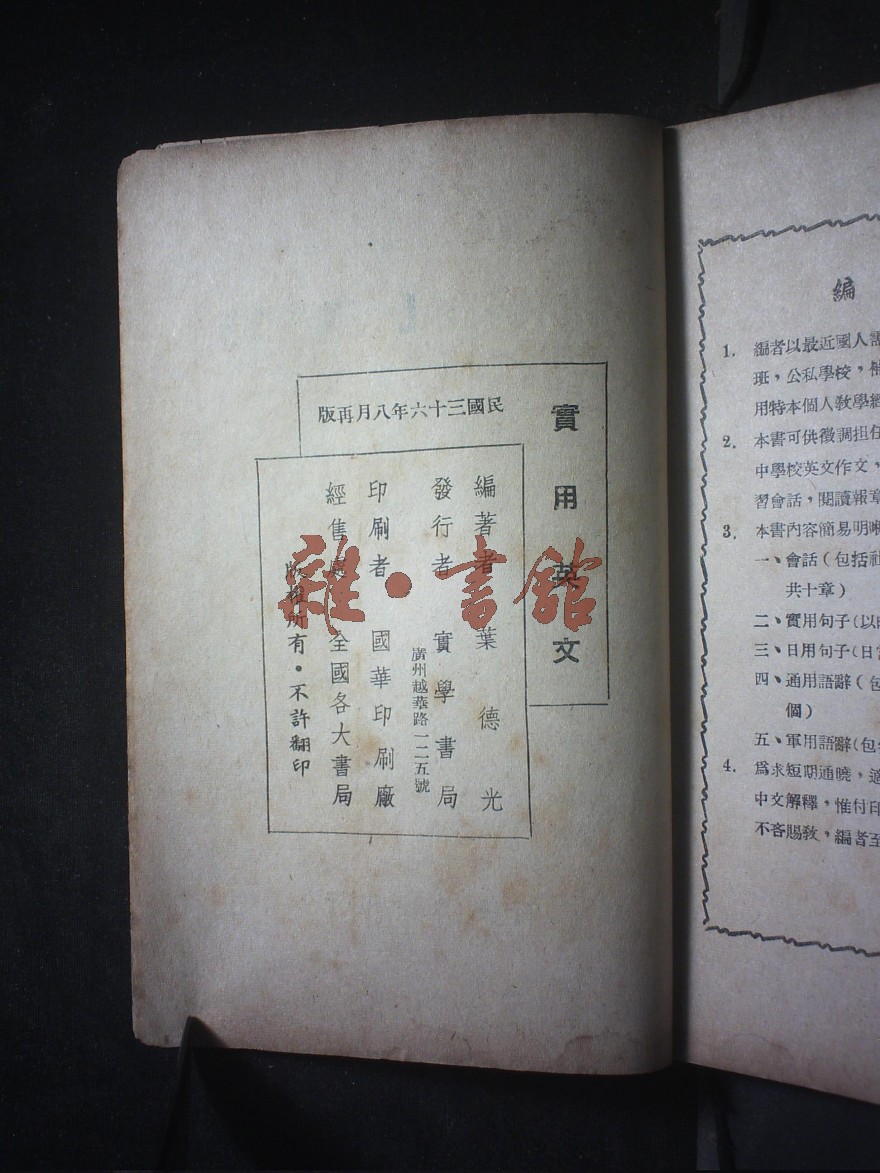 實用英文
民國三十六年八月再版
編著者 葉德光
發行者 實學書局
廣州越華路一二五號
印刷者 國華印刷廠
經售處 全國各大書局
版權所有·不許翻印
雜·書館
編
1. 編者以最近國人需
班，公私學校，補
用特本個人教學經
2. 本書可供徵調担任
中學校英文作文，
習會話，閱讀報章
3. 本書內容簡易明晰
一、會話（包括社
共十章）
二、實用句子（以
三、日用句子（日常
四、通用語辭（包
個）
五、軍用語辭（包
4. 爲求短期通曉，適
中文解釋，惟付印
不吝賜敎，編者至